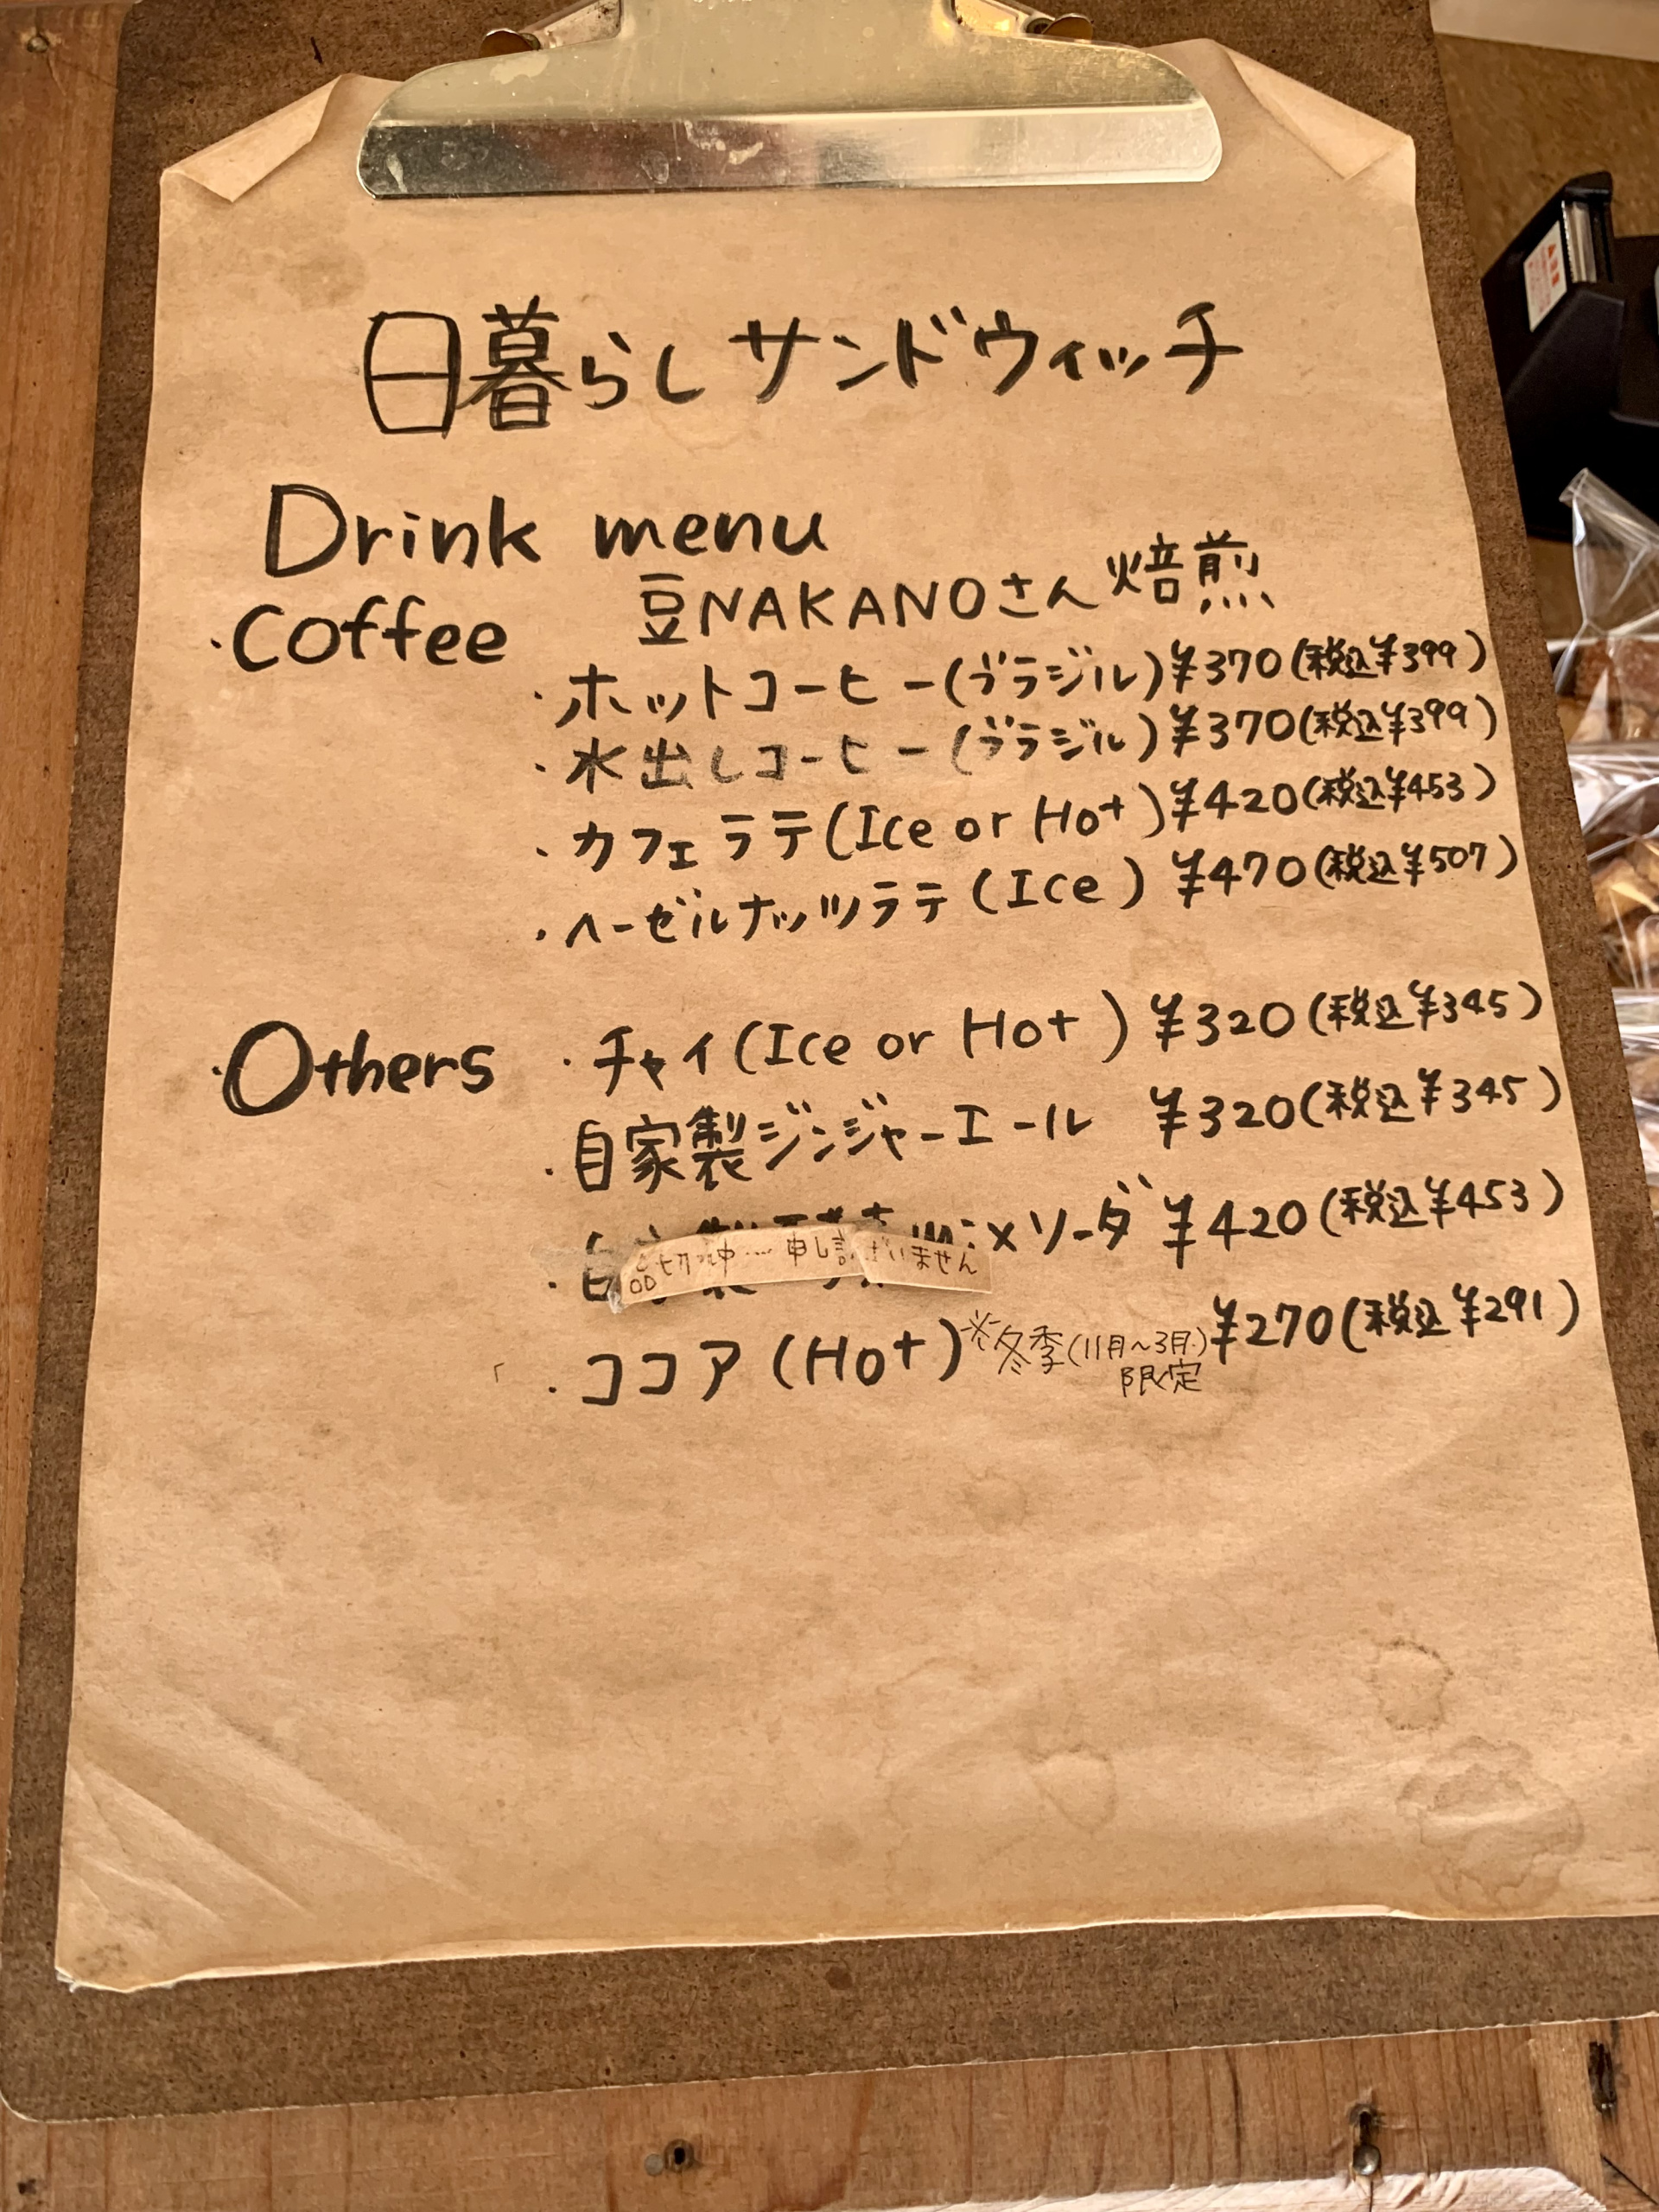 日暮らしサンドウィッチ
Drink menu
・Coffee 豆NAKANOさん焙煎
・ホットコーヒー(ブラジル)¥370(税込¥399)
・水出しコーヒー(ブラジル)¥370(税込¥399)
・カフェラテ(Ice or Hot)¥420(税込¥453)
・ヘーゼルナッツラテ(Ice)¥470(税込¥507)
・Others ・チャイ(Ice or Hot)¥320(税込¥345)
・自家製ジンジャーエール ¥320(税込¥345)
・mixソーダ ¥420(税込¥453)
品切れ中… 申し訳ございません
・ココア(Hot)※冬季(11月~3月)限定 ¥270(税込¥291)